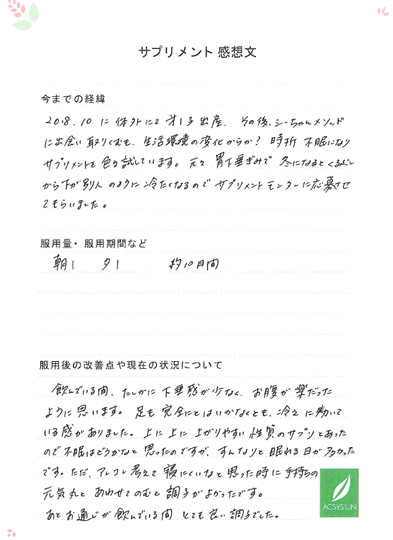 サプリメント 感想文
今までの経緯
2018.10 に 体外にて 第1子 出産、 その後、シーちゃんメソッド
に出会い 取りくむも、生活環境の変化からか? 時折 不眠になり
サプリメントを色々試しています。元々 胃下垂ぎみで 冬になると くるぶし
から下が別人のように冷たくなるので サプリメントモニターに応募させ
てもらいました。
服用量・服用期間など
朝1 夕1 約10日間
服用後の改善点や現在の状況について
飲んでいる間、たしかに 下垂感が少なく、お腹が楽だった
ように思います。 足も 完全にとはいかなくとも、冷えに効いて
いる感がありました。上に上に 上がりやすい 性質のサプリとあった
ので不眠はどうかなと 思ったのですが、すんなりと眠れる日が多かった
です。ただ、アレコレ考えて 寝にくいなと思った時に手持ちの
元気丸と あわせてのむと 調子がよかったです。
あと お通じが 飲んでいる間 とても良い調子でした。
ACSYSUN